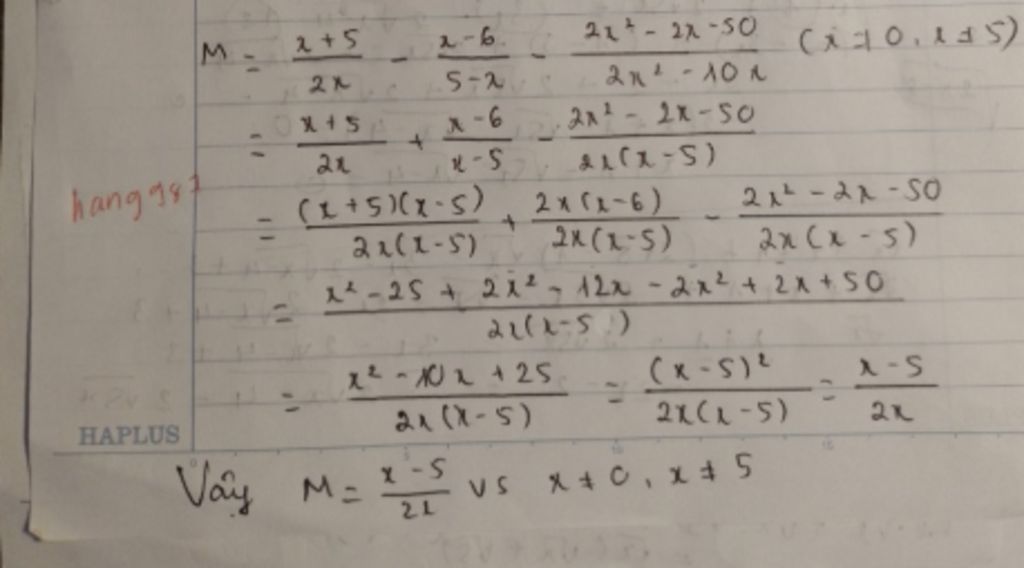 M = \frac{x+5}{2x} - \frac{x-6}{5-x} - \frac{2x² - 2x - 50}{2x² - 10x} (x ≠ 0, x ≠ 5)
= \frac{x+5}{2x} + \frac{x-6}{x-5} - \frac{2x² - 2x - 50}{2x(x-5)}
hang98
= \frac{(x+5)(x-5)}{2x(x-5)} + \frac{2x(x-6)}{2x(x-5)} - \frac{2x² - 2x - 50}{2x(x-5)}
= \frac{x² - 25 + 2x² - 12x - 2x² + 2x + 50}{2x(x-5)}
= \frac{x² - 10x + 25}{2x(x-5)} = \frac{(x-5)²}{2x(x-5)} = \frac{x-5}{2x}
HAPLUS
Vậy M = \frac{x-5}{2x} vs x ≠ 0, x ≠ 5